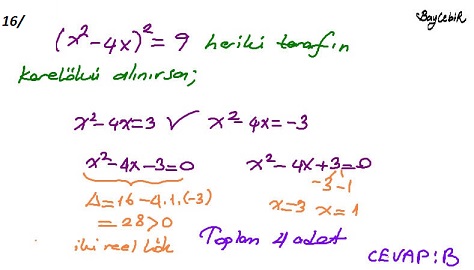 16/
Baycebir
(x²-4x)²=9 her iki tarafın
karekökü alınırsa;
x²-4x=3 ✓ x²-4x=-3
x²-4x-3=0 x²-4x+3=0
-3 -1
Δ=16-4.1.(-3) x=3 x=1
=28>0
iki reel kök Toplam 4 adet
CEVAP:B